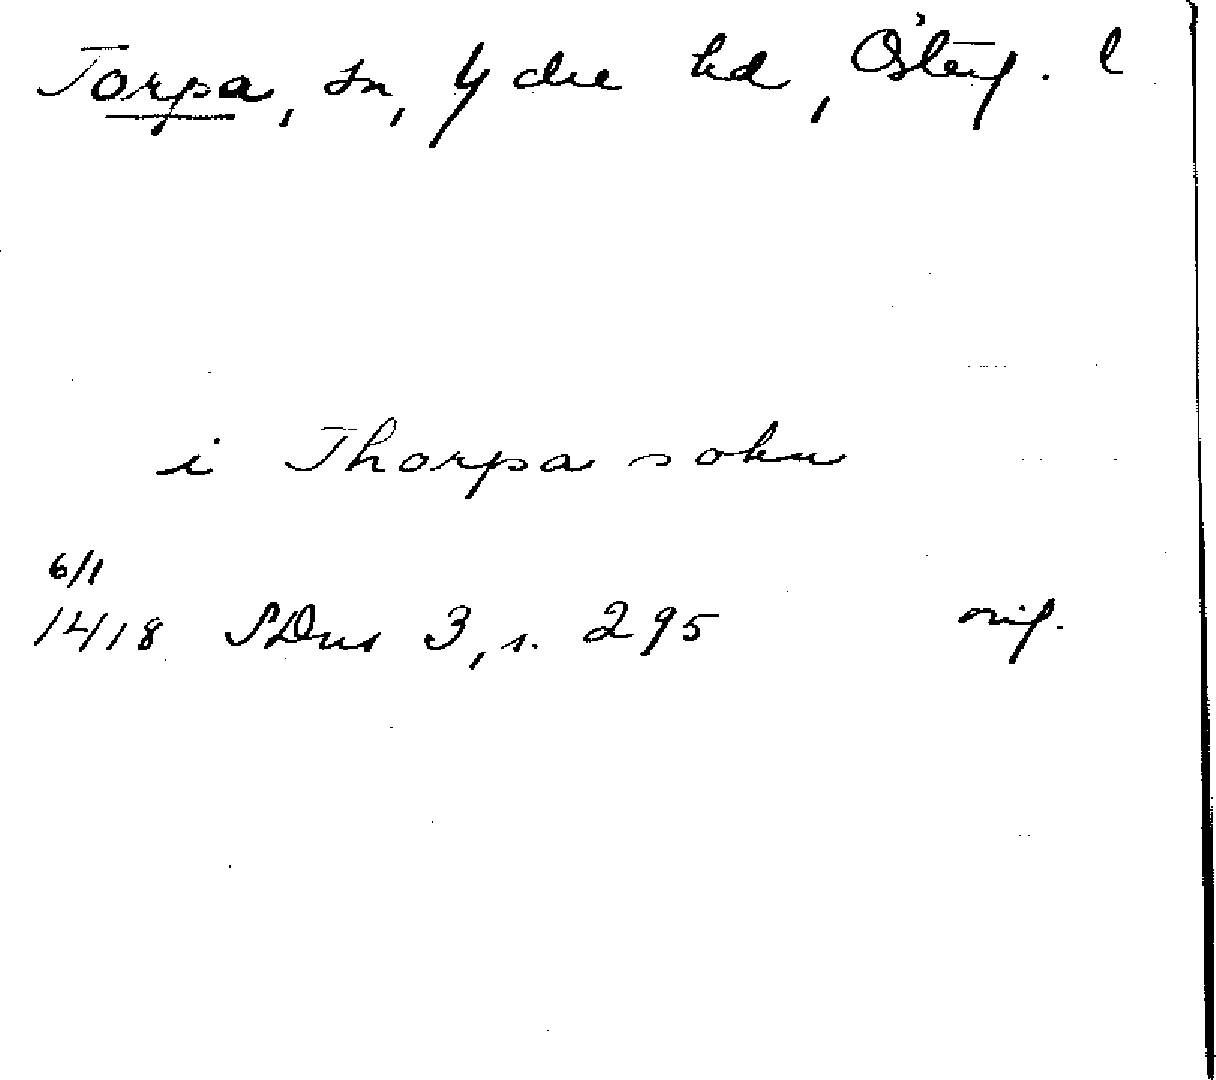 Torpa, sn, Ydre hd, Österg. l
i Thorpa sokn
6/1
1418 SDns 3, s. 295 orig.